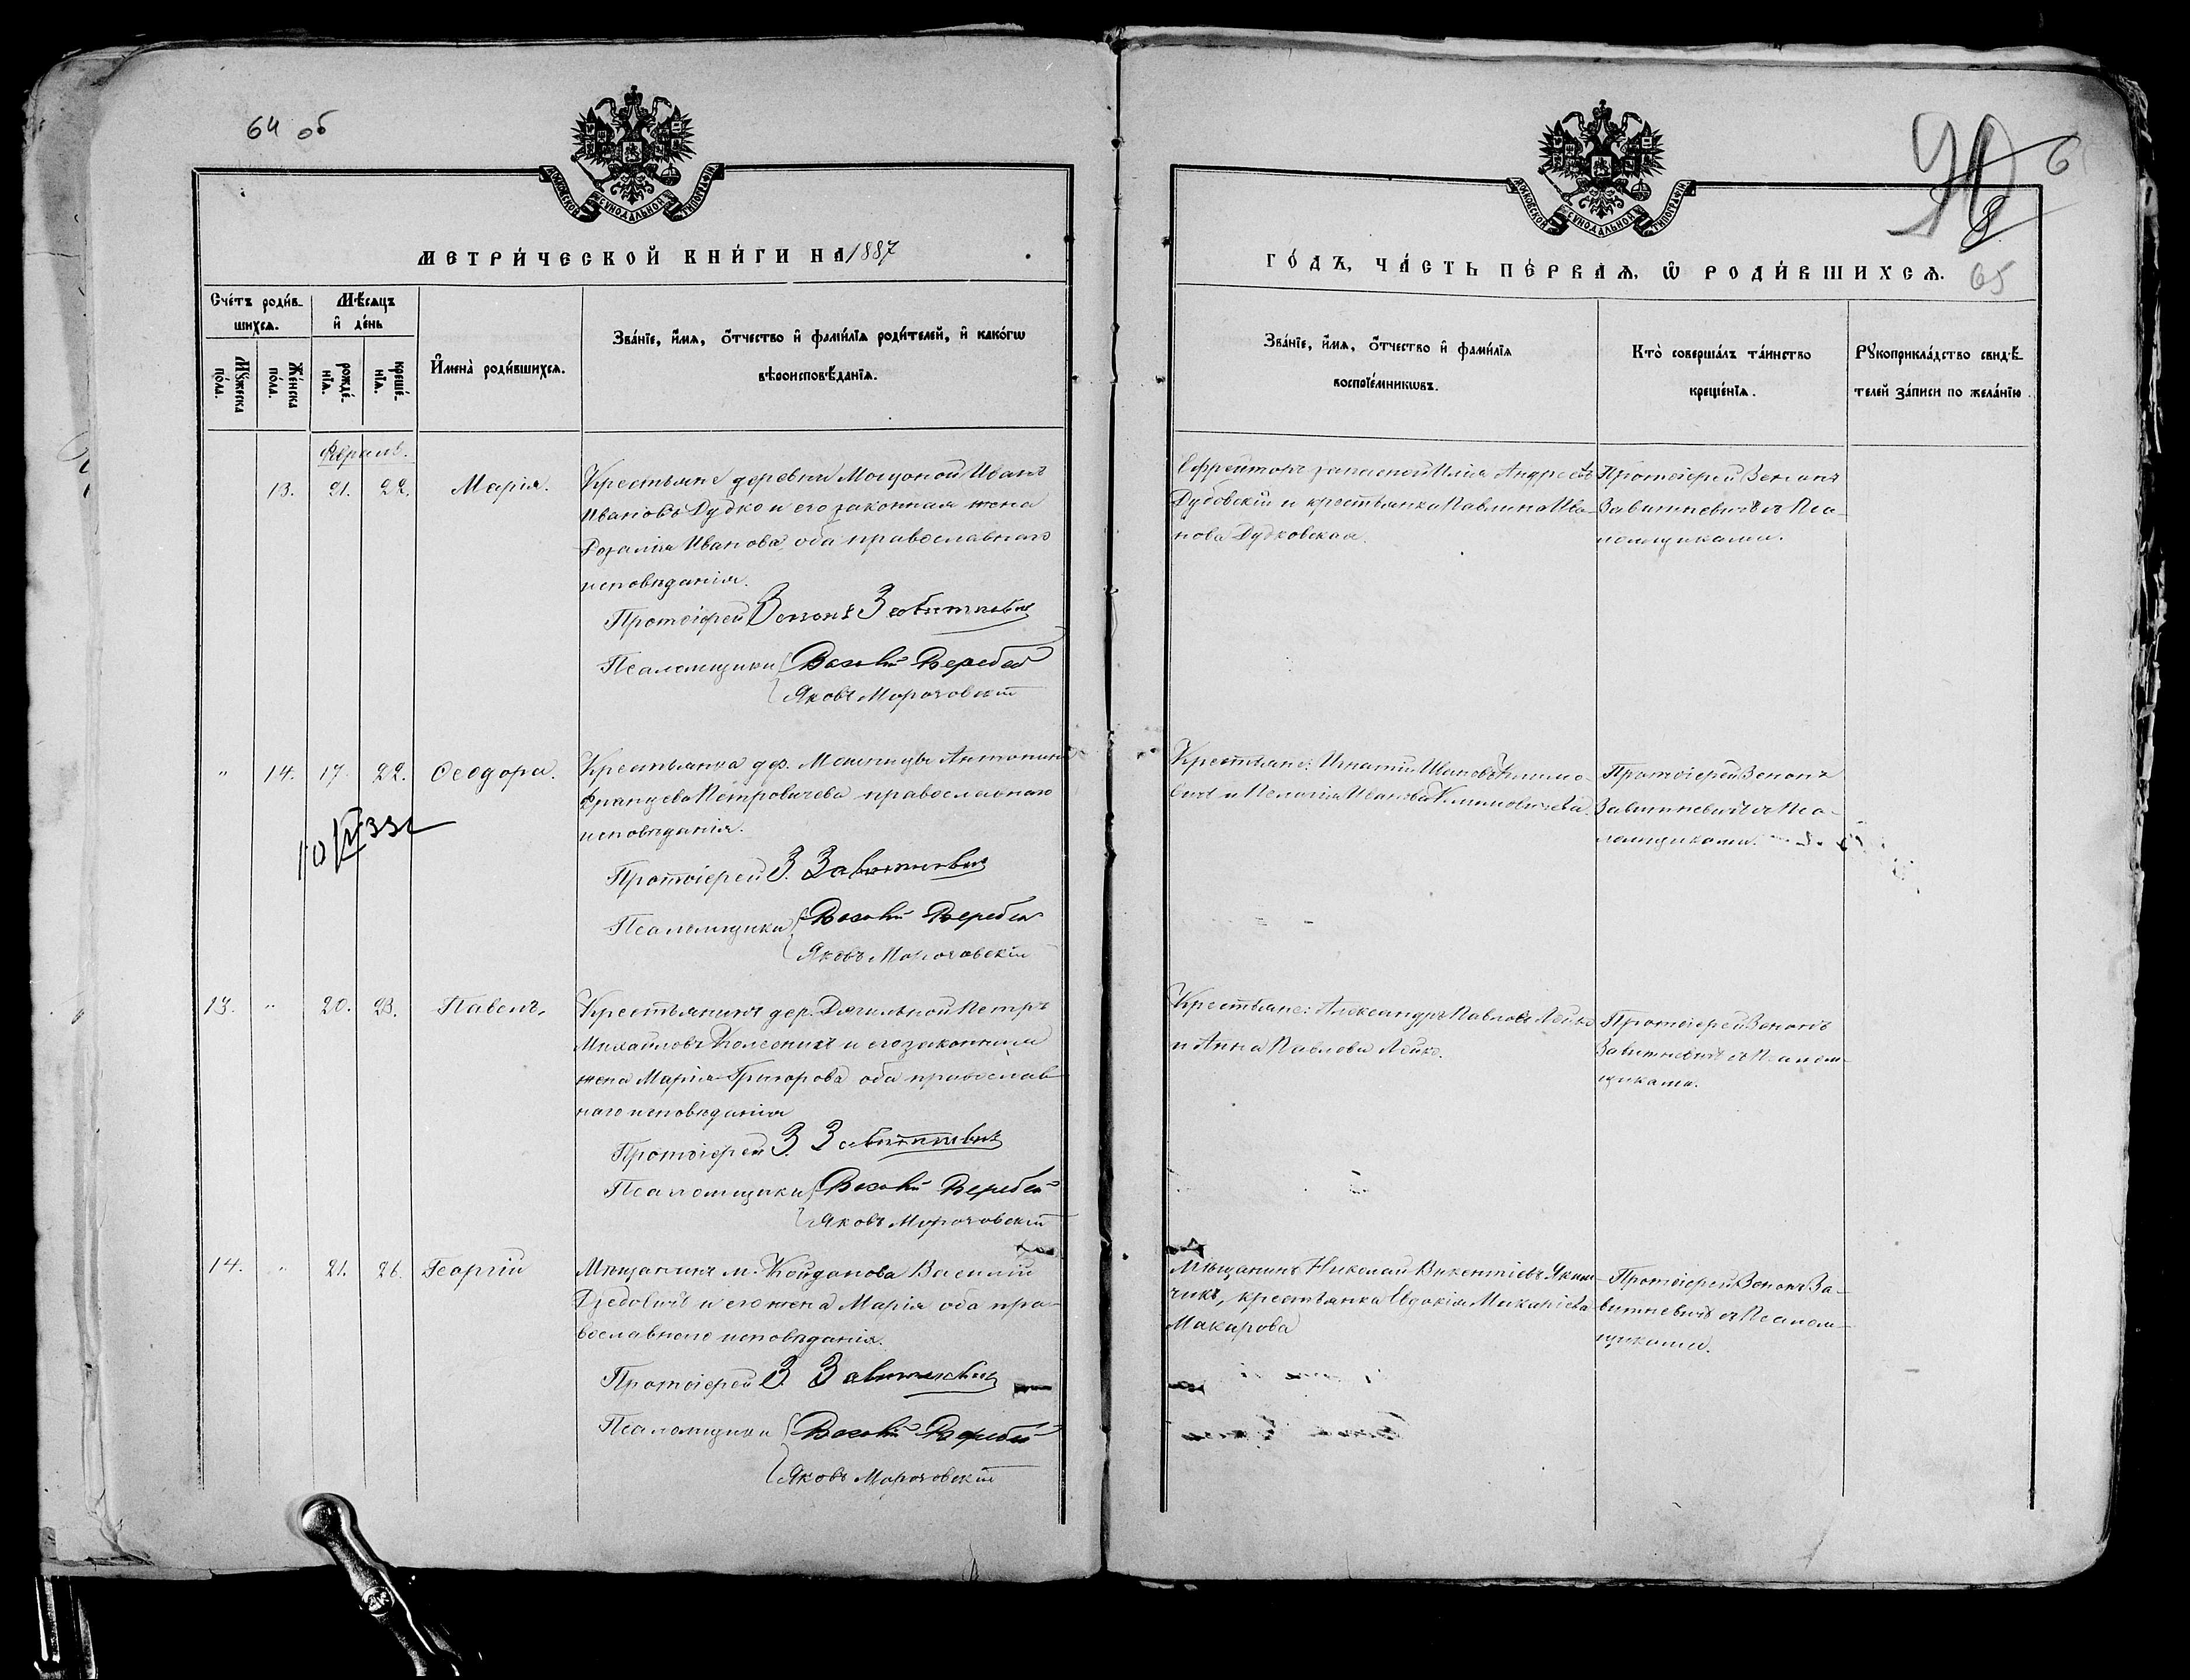 64 об
МОСКОВСКОЙ СѴНОДАЛЬНОЙ ТИПОГРАФІИ
МЕТРИ́ЧЕСКОЙ КНИ́ГИ НА 1887
Сче́тъ роди́в-
шихсѧ.
Мѣ́сѧцъ
и҆ де́нь
Мꙋ́жеска
по́ла.
Же́нска
по́ла.
рожде́-
нїѧ.
креще́-
нїѧ.
И҆мена̀ роди́вшихсѧ.
Зва́нїе, и҆́мѧ, ѻ҆́тчество и҆ фами́лїѧ роди́телей, и҆ како́гѡ
вѣроисповѣ́данїѧ.
Февраль.
13. 21. 22. Марія.
Крестьяне деревни Мощоной Иванъ
Ивановъ Дудко и его законная жена
Розалія Иванова, оба православнаго
исповѣданія.
Протоіерей Зенонъ Завитневичъ
Псаломщики Веребей
Яковъ Морочовскій
" 14. 17. 22. Ѳеодора.
Крестьянка дер. Антонина
Францева Петровичева православнаго
исповѣданія.
Протоіерей З. Завитневичъ
Псаломщики Веребей
Яковъ Морочовскій
13. " 20. 23. Павелъ.
Крестьянинъ дер. Дягильной Петръ
Михайловъ Колесникъ и его законная
жена Марія Григорова оба православ-
наго исповѣданія
Протоіерей З. Завитневичъ
Псаломщики Веребей
Яковъ Морочовскій
14. " 21. 26. Георгій
Мѣщанинъ м. Койданова Василій
Дзедовичъ и его жена Марія оба пра-
вославнаго исповѣданія.
Протоіерей З. Завитневичъ
Псаломщики Веребей
Яковъ Морочовскій
МОСКОВСКОЙ СѴНОДАЛЬНОЙ ТИПОГРАФІИ
ГО́ДЪ, ЧА́СТЬ ПЕ́РВАѦ, Ѡ҆ РОДИ́ВШИХСѦ.
65
Зва́нїе, и҆́мѧ, ѻ҆́тчество и҆ фами́лїѧ
воспрїе́мникѡвъ.
Кто̀ соверша́лъ та́инство
креще́нїѧ.
Рꙋкоприкла́дство свидѣ́-
телей за́писи по жела́нїю
Ефрейторъ запасной Илія Андреевъ
Дубовскій и крестьянка Павлина Ива-
нова Дудковская.
Протоіерей Зенонъ
Завитневичъ съ Пса-
ломщиками.
Крестьяне: Игнатій Ивановъ Климо-
вичъ и Пелагія Иванова Климовичева.
Протоіерей Зенонъ
Завитневичъ съ Пса-
ломщиками.
Крестьяне: Александръ Павловъ Лейко
и Анна Павлова Лейко.
Протоіерей Зенонъ
Завитневичъ съ Псалом-
щиками.
Мѣщанинъ Николай Викентіевъ Яким-
чикъ, крестьянка Евдокія Макаріева
Макарова
Протоіерей Зенонъ За-
витневичъ съ Псалом-
щиками.